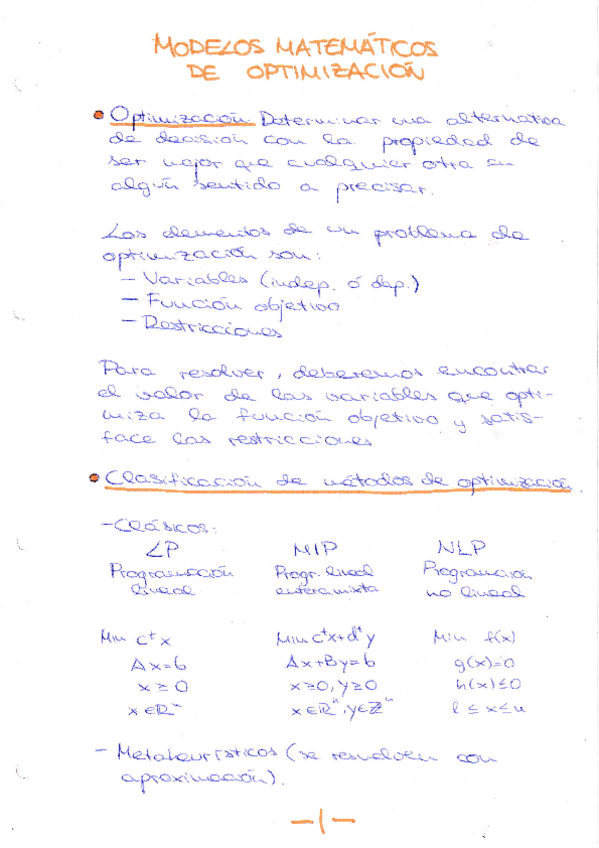 MODELOS MATEMÁTICOS
DE OPTIMIZACIÓN
• Optimización Determinar una alternativa
de decisión con la propiedad de
ser mejor que cualquier otra en
algún sentido a precisar.
Los elementos de un problema de
optimización son:
– Variables (indep. ó dep.)
– Función objetivo
– Restricciones
Para resolver, deberemos encontrar
el valor de las variables que opti-
miza la función objetivo y satis-
face las restricciones
• Clasificación de métodos de optimización
- Clásicos:
LP MIP NLP
Programación Progr. lineal Programación
lineal enteramixta no lineal
Min cᵗx Min cᵗx+dᵗy Min f(x)
Ax=b Ax+By=b g(x)=0
x≥0 x≥0, y≥0 h(x)≤0
x∈ℝⁿ x∈ℝⁿ, y∈ℤⁿ l≤x≤u
- Metaheurísticos (se resuelven con
aproximación).
-1-